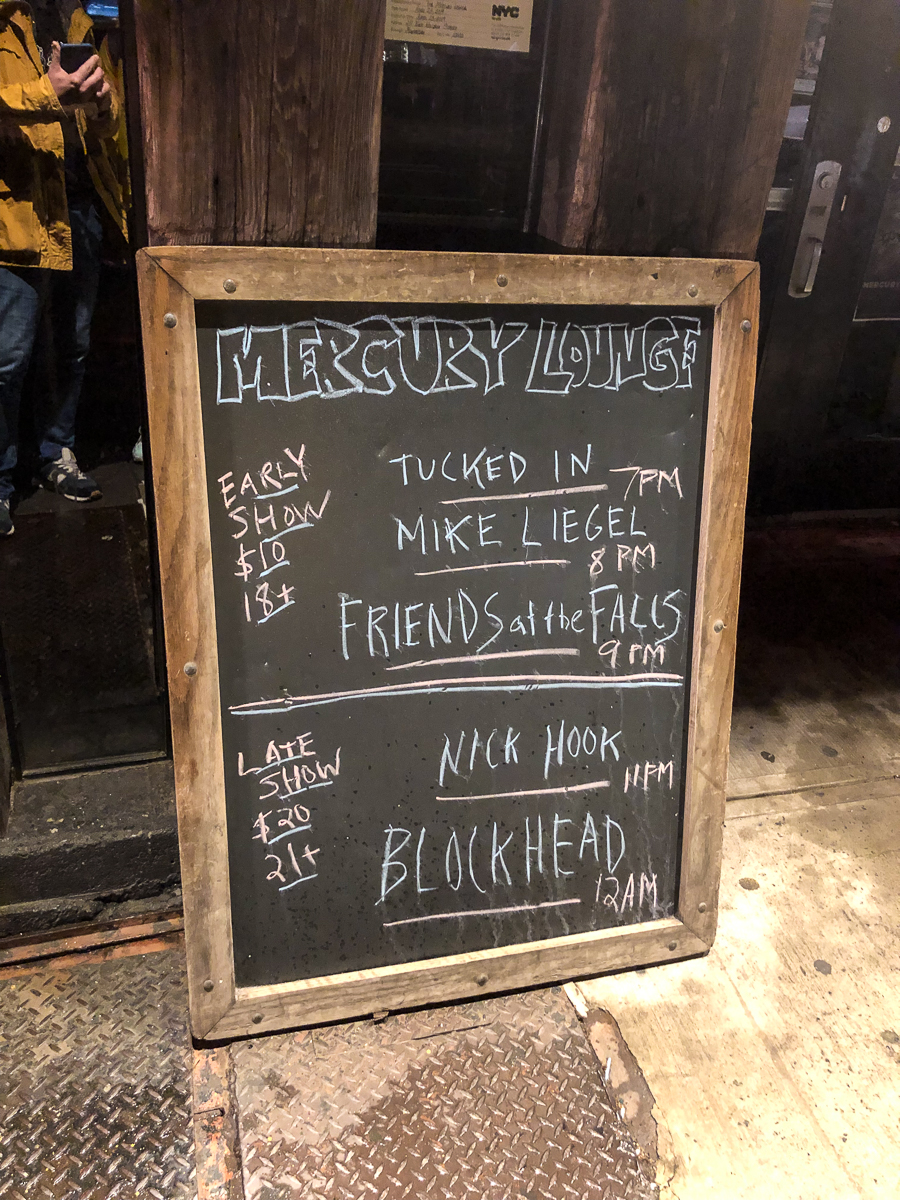 NYC
MERCURY LOUNGE
EARLY
SHOW
$10
18+
TUCKED IN
7PM
MIKE LIEGEL
8 PM
FRIENDS at the FALLS
9 PM
LATE
SHOW
$20
21+
NICK HOOK
11PM
BLOCKHEAD
12AM